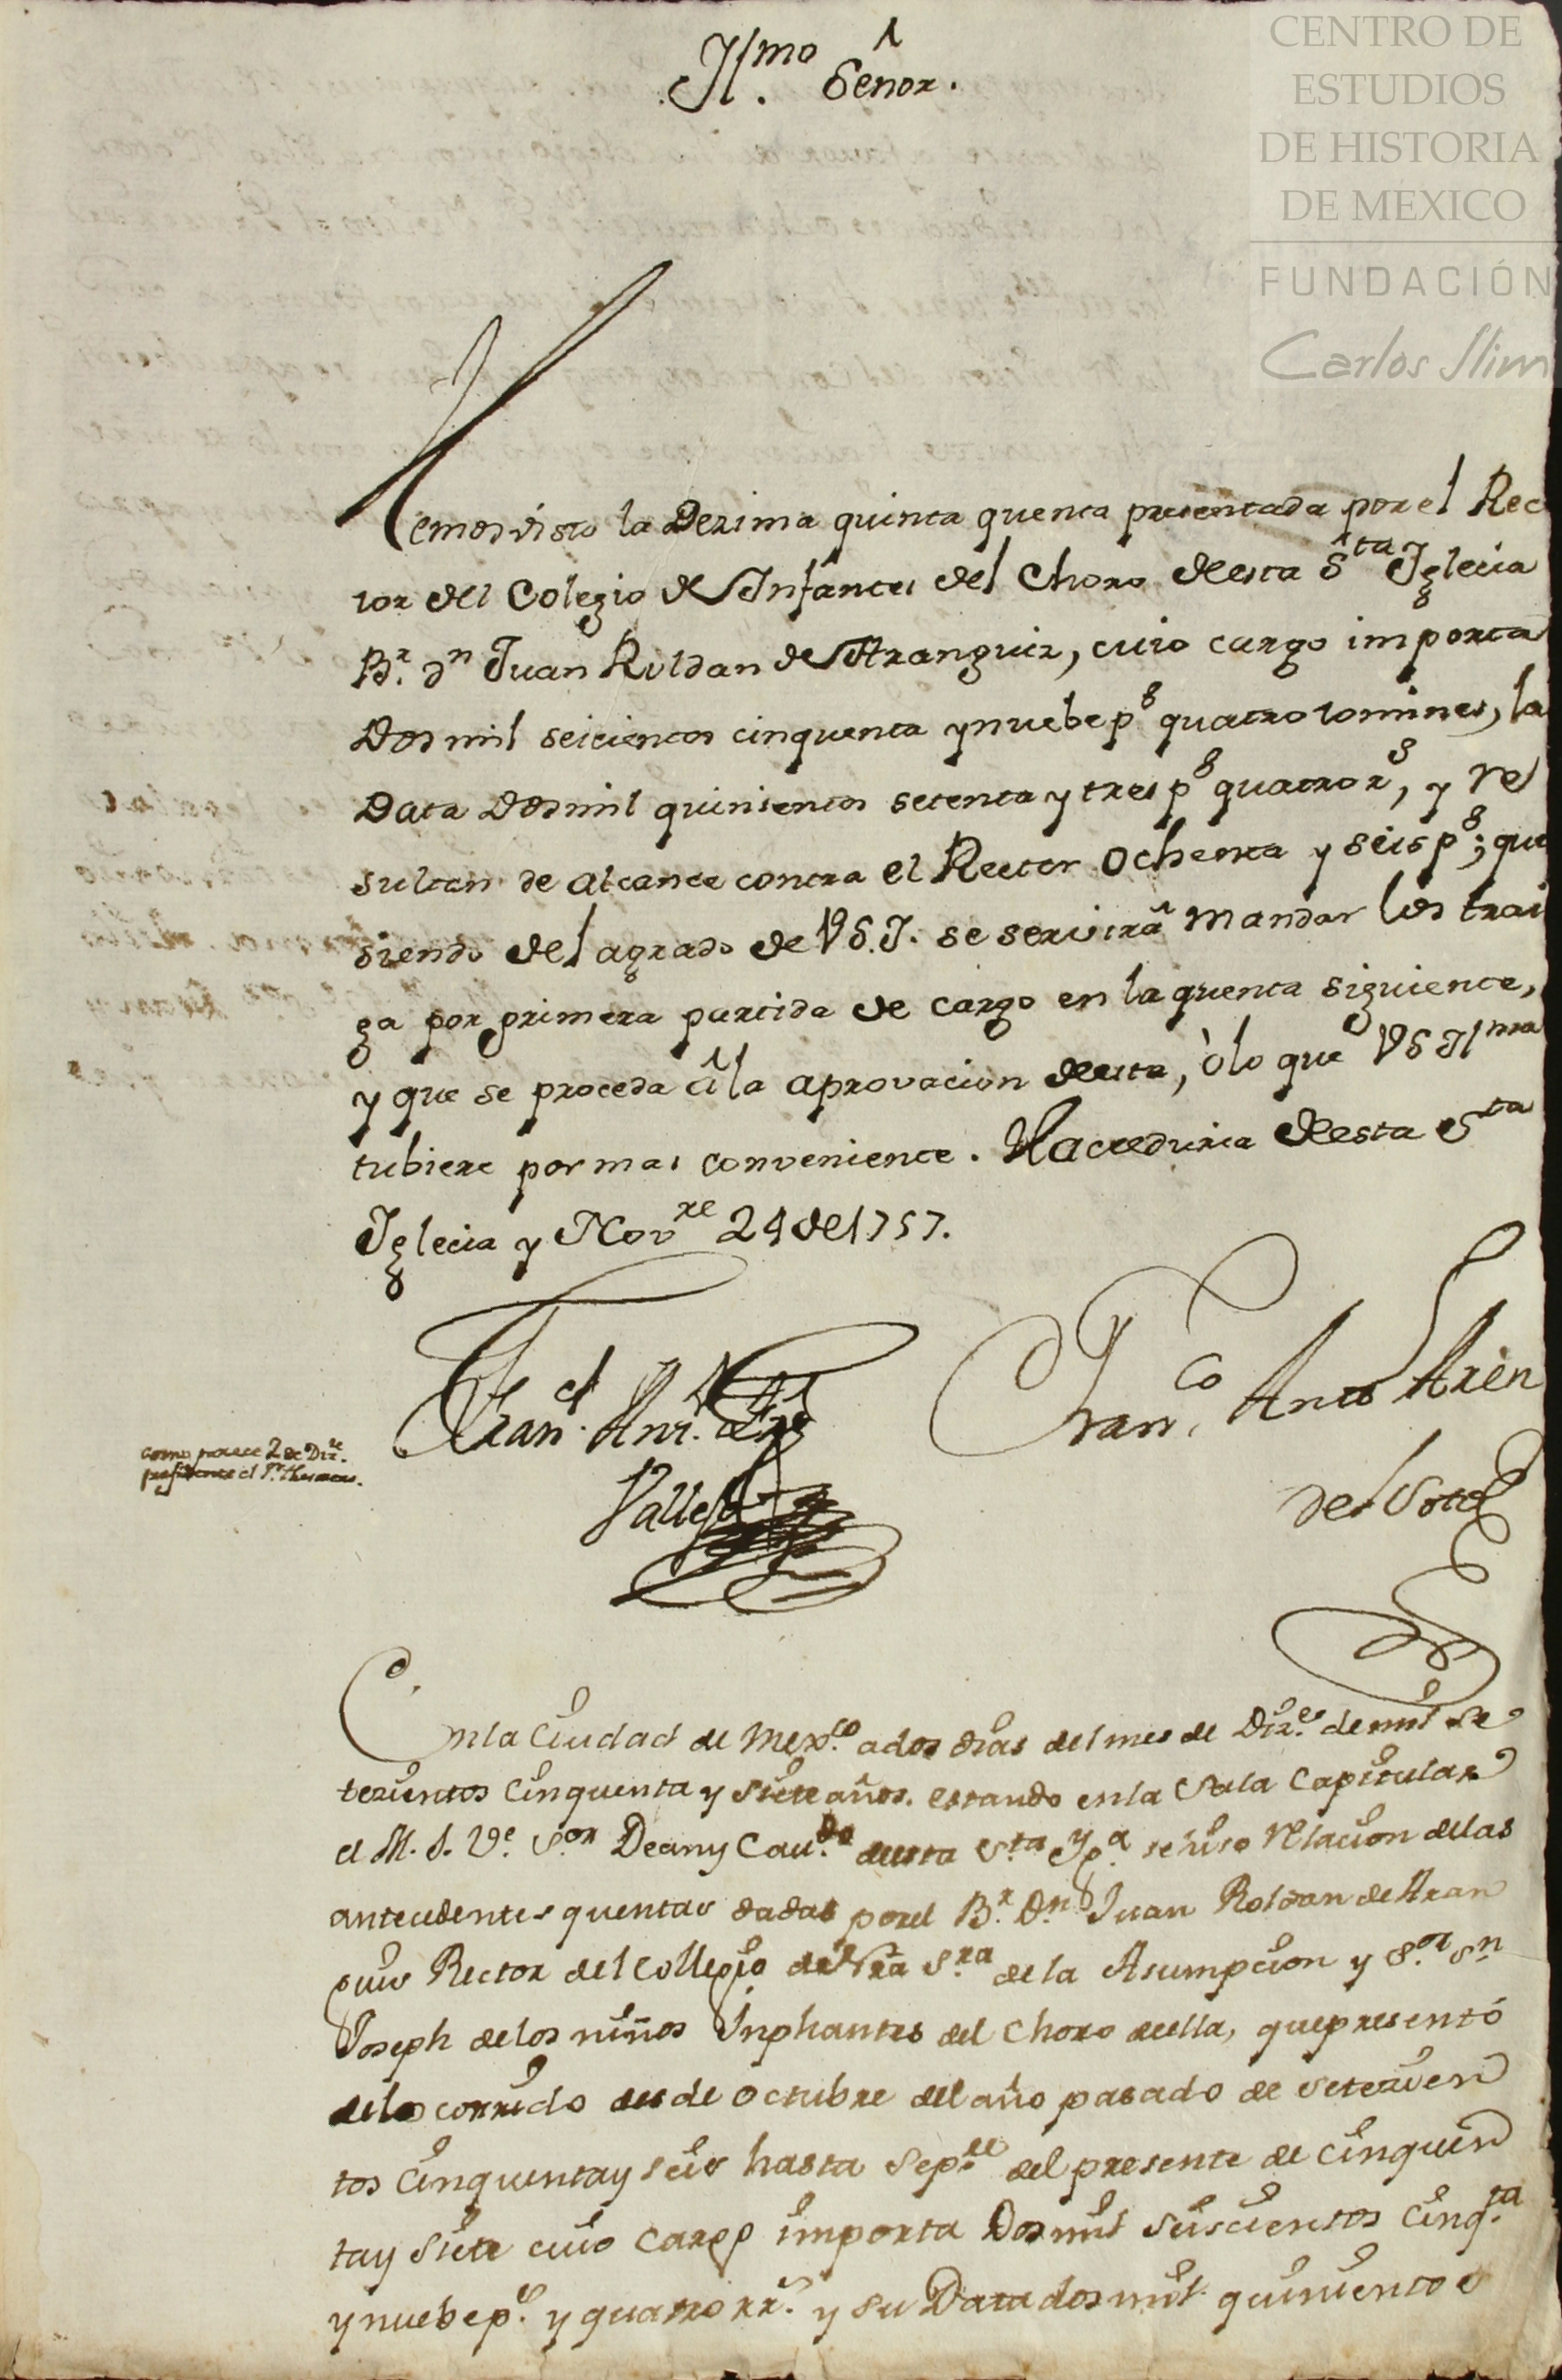 Jl.mo Señor.
CENTRO DE
ESTUDIOS
DE HISTORIA
DE MEXICO
FUNDACIÓN
Carlos Slim
Hemos visto la Dezima quinta quenta presentada por el Rec
tor del Colegio de Infantes del Choro de esta Sta Iglecia
Br. Dn Juan Roldan de Aranguiz, cuio cargo importa
Dos mil seicientos cinquenta y nuebe ps quatro tomines, la
Data Dos mil quinientos setenta y tres ps quatro rs, y re
sultan de alcance contra el Rector ochenta y seis ps; que
siendo del agrado de VS.J. se servirá mandar los trai
ga por primera partida de cargo en la quenta siguiente,
y que se proceda á la aprovacion de esta, ò lo que VS Jlma
tubiere por mas conveniente. Hacceduria de esta Sta
Iglecia y Novre 24 de 1757.
Fran.co Ant.
Vallejo
Fran.co Anto
del Soto
como parece 2 de Dize.
En la Ciudad de Mexco. a dos dias del mes de Dize. de mil se
tezientos cinquenta y siete años. estando en la Sala Capitular
el M. I. Ve. Sor Dean y Caudo. de esta Sta. Yga. se hiso relacion de las
antecedentes quentas dadas por el Br. Dn Juan Roldan de Aran
guis Rector del Collegio de Nra Sra de la Asumpcion y Sor. Sn
Joseph de los niños Inphantes del Choro de ella, que presentó
de lo corrido desde octubre del año pasado de setezien
tos cinquenta y seis hasta Sepre. del presente de cinquen
ta y siete cuio cargo importa Dos mil seiscientos cinqta.
y nuebe ps. y quatro rrs. y su Data dos mil quinientos